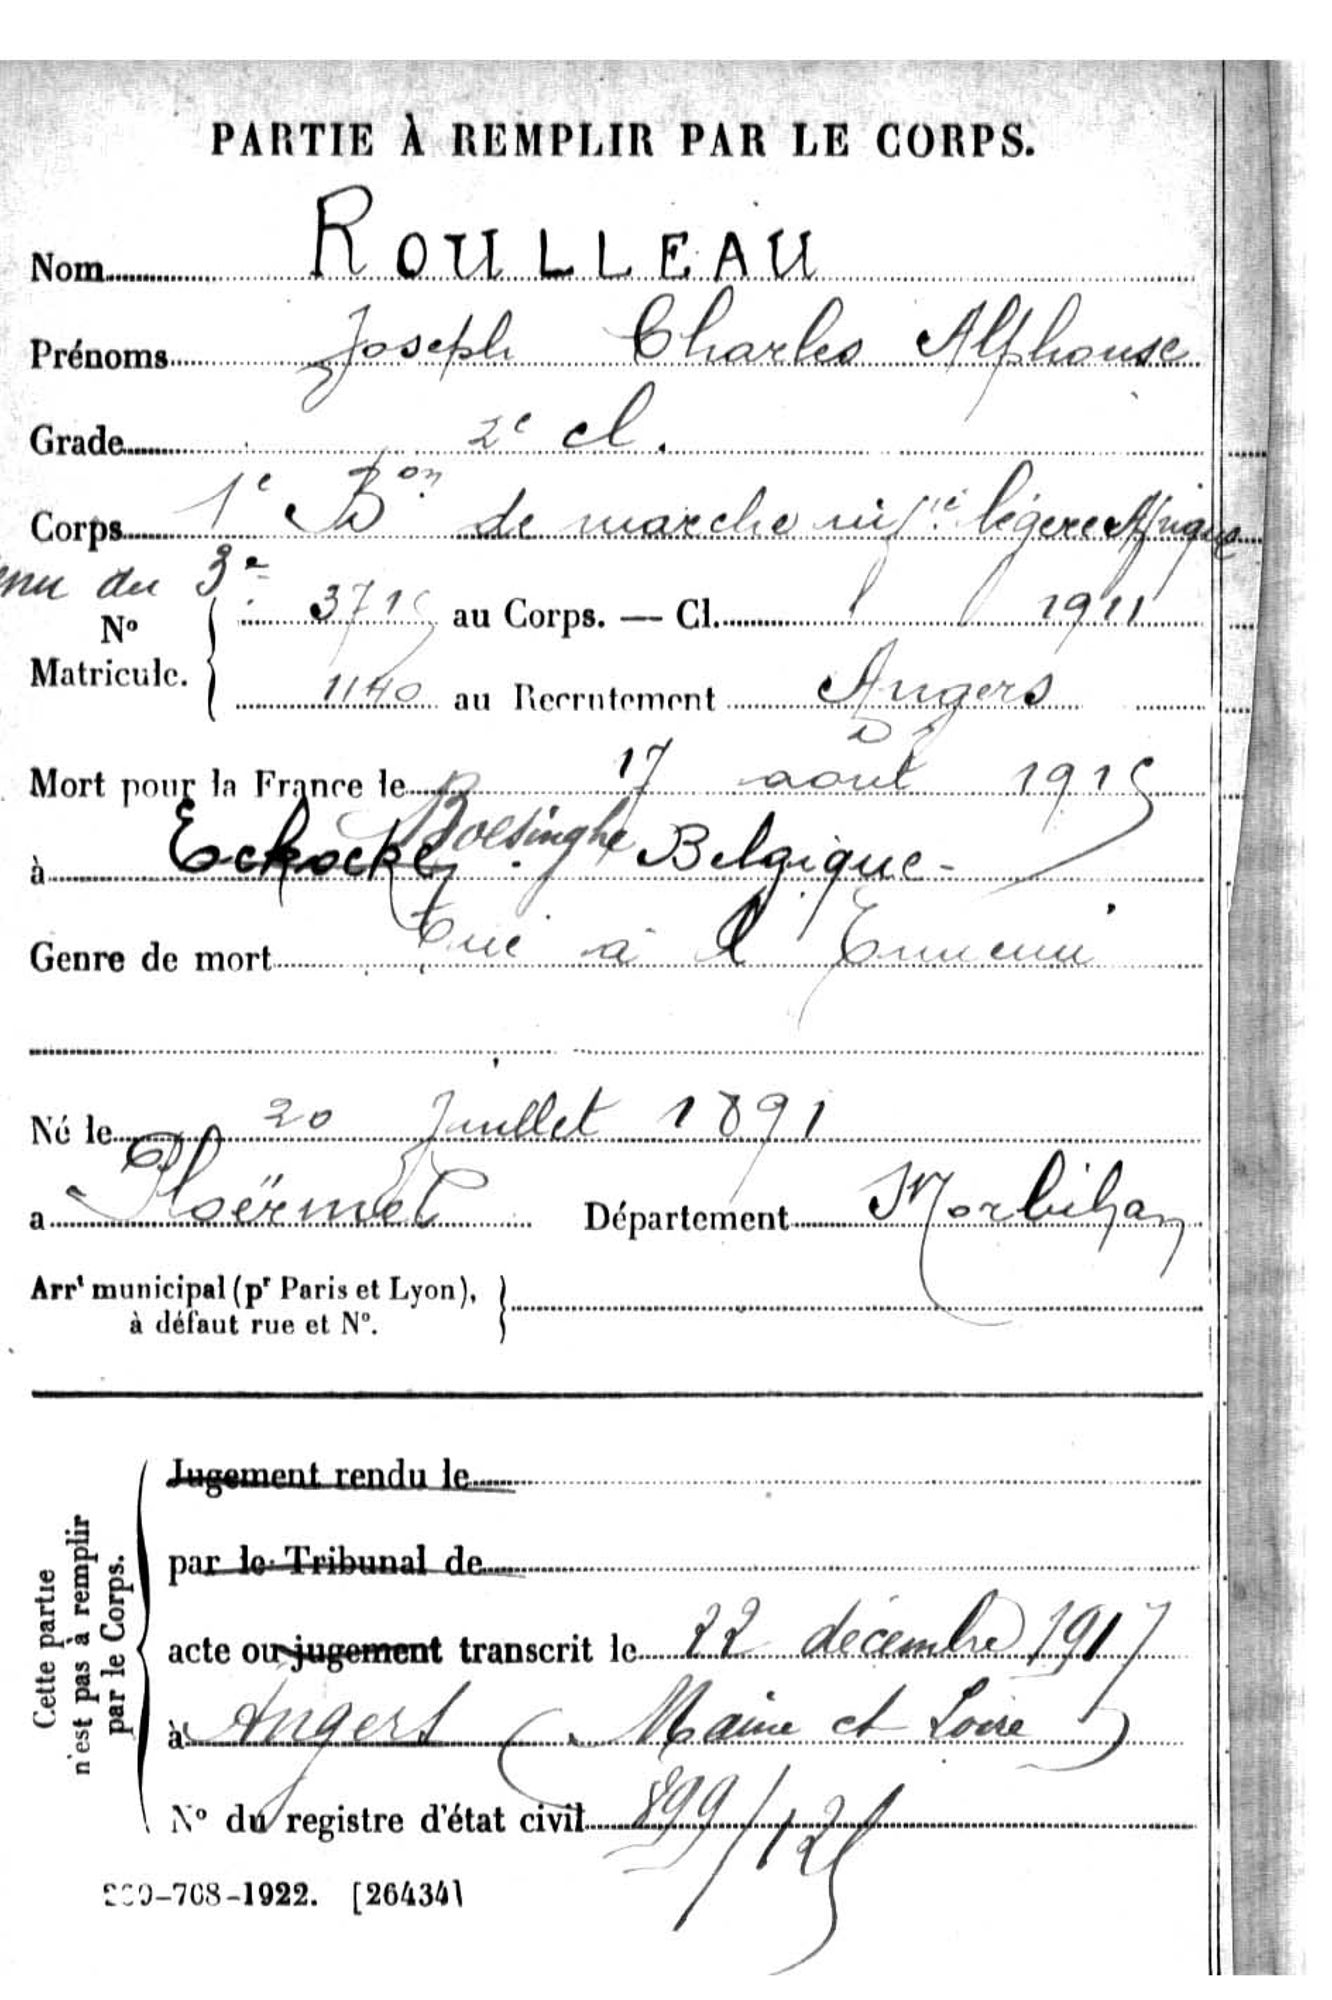 PARTIE À REMPLIR PAR LE CORPS.
Nom ROULLEAU
Prénoms Joseph Charles Alphonse
Grade 2e cl.
Corps 1e Bon de marche infie légère Afrique
enu du 3e
No Matricule. 3715 au Corps. — Cl. 1911
1140 au Recrutement Angers
Mort pour la France le 17 août 1915
Boesinghe
à Belgique
Genre de mort Tué à l'Ennemi
Né le 20 Juillet 1891
a Ploërmel Département Morbihan
Arrt municipal (pr Paris et Lyon),
à défaut rue et No.
Cette partie
n'est pas à remplir
par le Corps.
Jugement rendu le
par le Tribunal de
acte ou jugement transcrit le 22 décembre 1917
à Angers (Maine et Loire)
No du registre d'état civil 899/125
-708-1922. [26434]